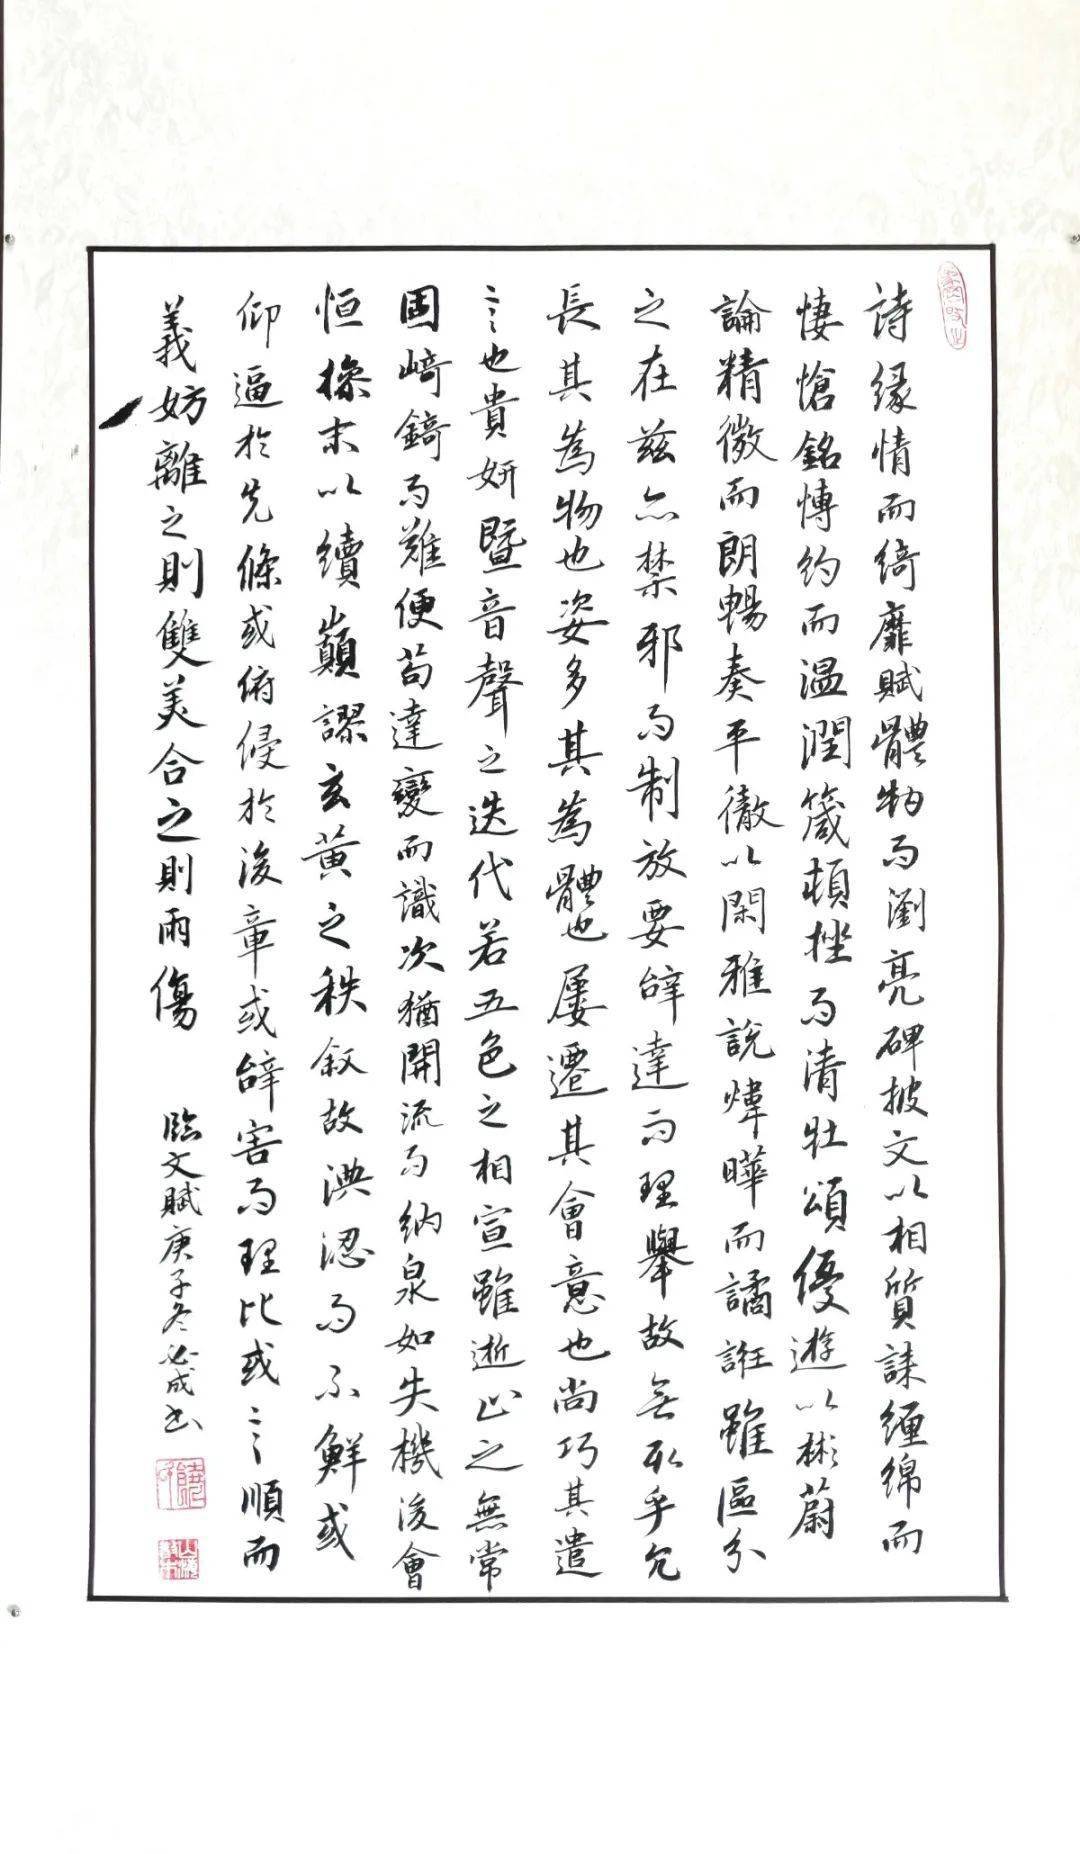 詩緣情而綺靡賦體物而瀏亮碑披文以相質誄纏綿而
悽愴銘博約而温潤箴頓挫而清壯頌優遊以彬蔚
論精微而朗暢奏平徹以閑雅說煒曄而譎誑雖區分
之在兹亦禁邪而制放要辭達而理舉故無取乎冗
長其為物也姿多其為體也屢遷其會意也尚巧其遣
言也貴妍暨音聲之迭代若五色之相宣雖逝止之無常
固崎錡而難便苟達變而識次猶開流而納泉如失機後會
恒操末以續巔謬玄黄之秩叙故淟涊而不鮮或
仰逼於先條或俯侵於後章或辭害而理比或言順而
義妨離之則雙美合之則兩傷
臨文賦庚子冬必成書